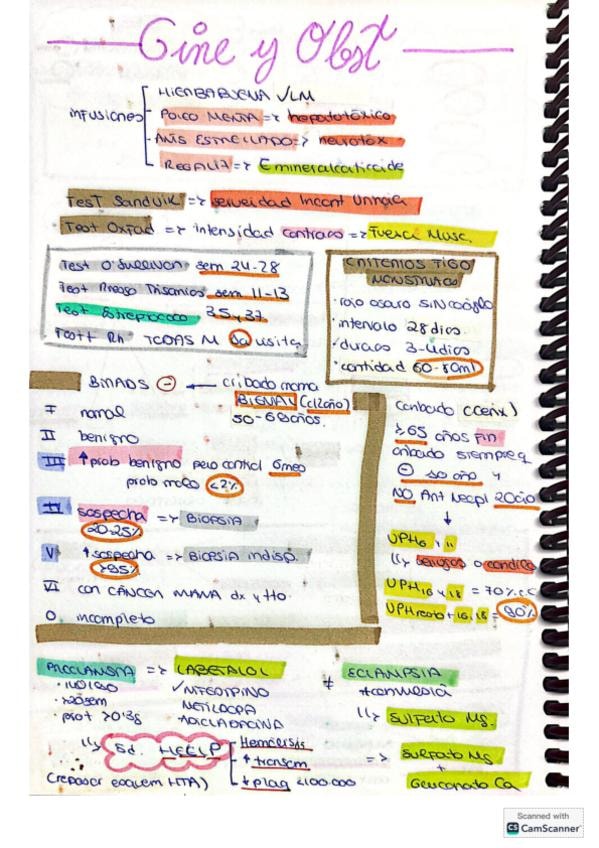 Gine y Obst
infusiones
HIERBABUENA ✓LM
POLEO MENTA => hepatotóxico
ANÍS ESTRELLADO => neurotox
REGALIZ => E mineralcorticoide
Test Sandvik => severidad Incont Urinaria
Test Oxford => intensidad contracc => Fuerza Musc.
Test O'Sullivan sem 24-28
Test Riesgo Trisomías sem 11-13
Test Estreptococo 35 y 37
Test Rh TODAS M 1a visita
CRITERIOS TIPO
MENSTRUACI
· rojo oscuro SIN coágulo
· intervalo 28 días
· duración 3-4 días
· cantidad 60-80ml
BIRADS ⊖ ← cribado mama
BIENAL (c/2año)
50-69 años.
I normal
II benigno
III ↑prob benigno pero control 6me
prob malo <2%
IV sospecha => BIOPSIA
20-25%
V ↑sospecha => BIOPSIA indisp.
>95%
VI con CÁNCER MAMA dx y tto.
0 incompleto
cribado (cérix)
≥65 años FIN
cribado siempre q
⊖ 10 año y
NO Ant Neopl 20año
↓
VPH 6 y 11
↳ benignos o condilo
VPH 16 y 18 = 70%
VPH resto + 16, 18 = 90%
PREECLAMPSIA => LABETALOL
✓NIFEDIPINO
· >20sem METILDOPA
· prot >0'3g
↳ Sd. HEELP
Hemólisis
↑ transam
↓ plaq <100.000
(repasar esquem HTA)
≠ ECLAMPSIA
+convulsión
↳ Sulfato Mg.
=> Sulfato Mg
+
Gluconato Ca
Scanned with
CS CamScanner